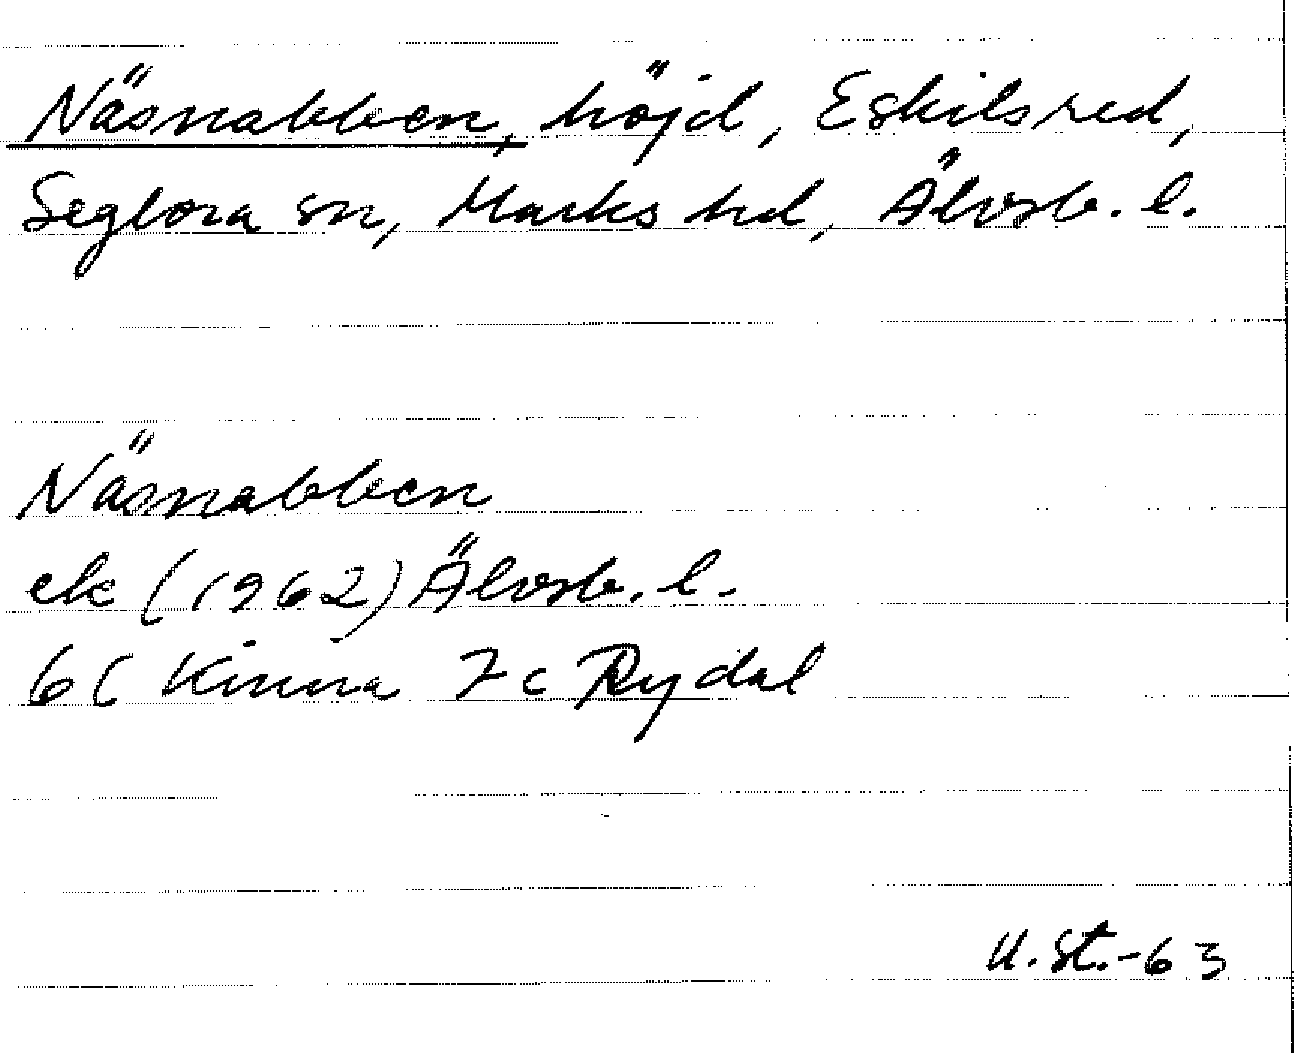 Näsnabben, höjd, Eskilsred,
Seglora sn, Marks hd, Älvsb. l.
Näsnabben
ek (1962) Älvsb. l.
6C Kinna 7c Rydal
U. St.-63